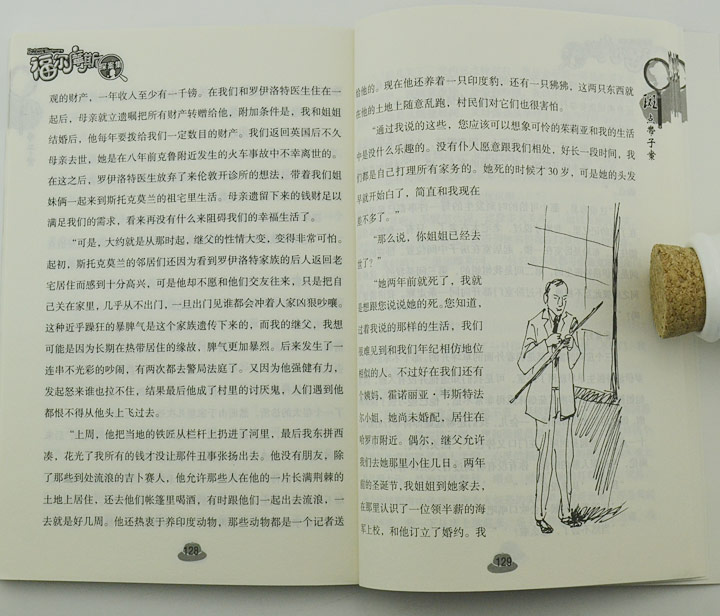 福尔摩斯
观的财产，一年收入至少有一千镑。在我们和罗伊洛特医生住在一
起后，母亲就立遗嘱把所有财产转赠给他，附加条件是，我和姐姐
结婚后，他每年要拨给我们一定数目的财产。我们返回英国后不久
母亲去世，她是在八年前克鲁附近发生的火车事故中不幸离世的。
在这之后，罗伊洛特医生放弃了来伦敦开诊所的想法，带着我们姐
妹俩一起来到斯托克莫兰的祖宅里生活。母亲遗留下来的钱财足以
满足我们的需求，看来再没有什么来阻碍我们的幸福生活了。
“可是，大约就是从那时起，继父的性情大变，变得非常可怕。
起初，斯托克莫兰的邻居们还因为看到罗伊洛特家族的后人返回老
宅居住而感到十分高兴，可是他却不愿和他们交友往来，只是把自
己关在家里，几乎从不出门，一旦出门见谁都会冲着人家凶狠吵嚷。
这种近乎躁狂的暴脾气是这个家族遗传下来的，而我的继父，我想
可能是因为长期在热带居住的缘故，脾气更加暴烈。后来发生了一
连串不光彩的吵闹，有两次都去警局法庭了。又因为他强健有力，
发起怒来谁也拉不住，结果最后他成了村里的讨厌鬼，人们遇到他
都恨不得从他头上飞过去。
“上周，他把当地的铁匠从栏杆上扔进了河里，最后我东拼西
凑，花光了我所有的钱才没让那件丑事张扬出去。他没有朋友，除
了那些到处流浪的吉卜赛人，他允许那些人在他的一片长满荆棘的
土地上居住，还去他们帐篷里喝酒，有时跟他们一起出去流浪，一
去就是好几周。他还热衷于养印度动物，那些动物都是一个记者送
128
给他的。现在他还养着一只印度豹，还有一只狒狒，这两只东西就
在他的土地上随意乱跑，村民们对它们也很害怕。
“通过我说的这些，您应该可以想象可怜的茱莉亚和我的生活
中是没什么乐趣的。没有仆人愿意跟我们相处，好长一段时间，我
们都是自己打理所有家务的。她死的时候才 30 岁，可是她的头发
早就开始白了，简直和我现在
差不多了。”
“那么说，你姐姐已经去
世了？”
“她两年前就死了，我就
是想跟您说说她的死。您知道，
过着我说的那样的生活，我们
很难见到和我们年纪相仿地位
相似的人。不过好在我们还有
个姨妈，霍诺丽亚·韦斯特法
尔小姐，她尚未婚配，居住在
哈罗市附近。偶尔，继父允许
我们去她那里小住几日。两年
前的圣诞节，我姐姐到她家去，
在那里认识了一位领半薪的海
军上校，和他订立了婚约。我
129
斑点带子案